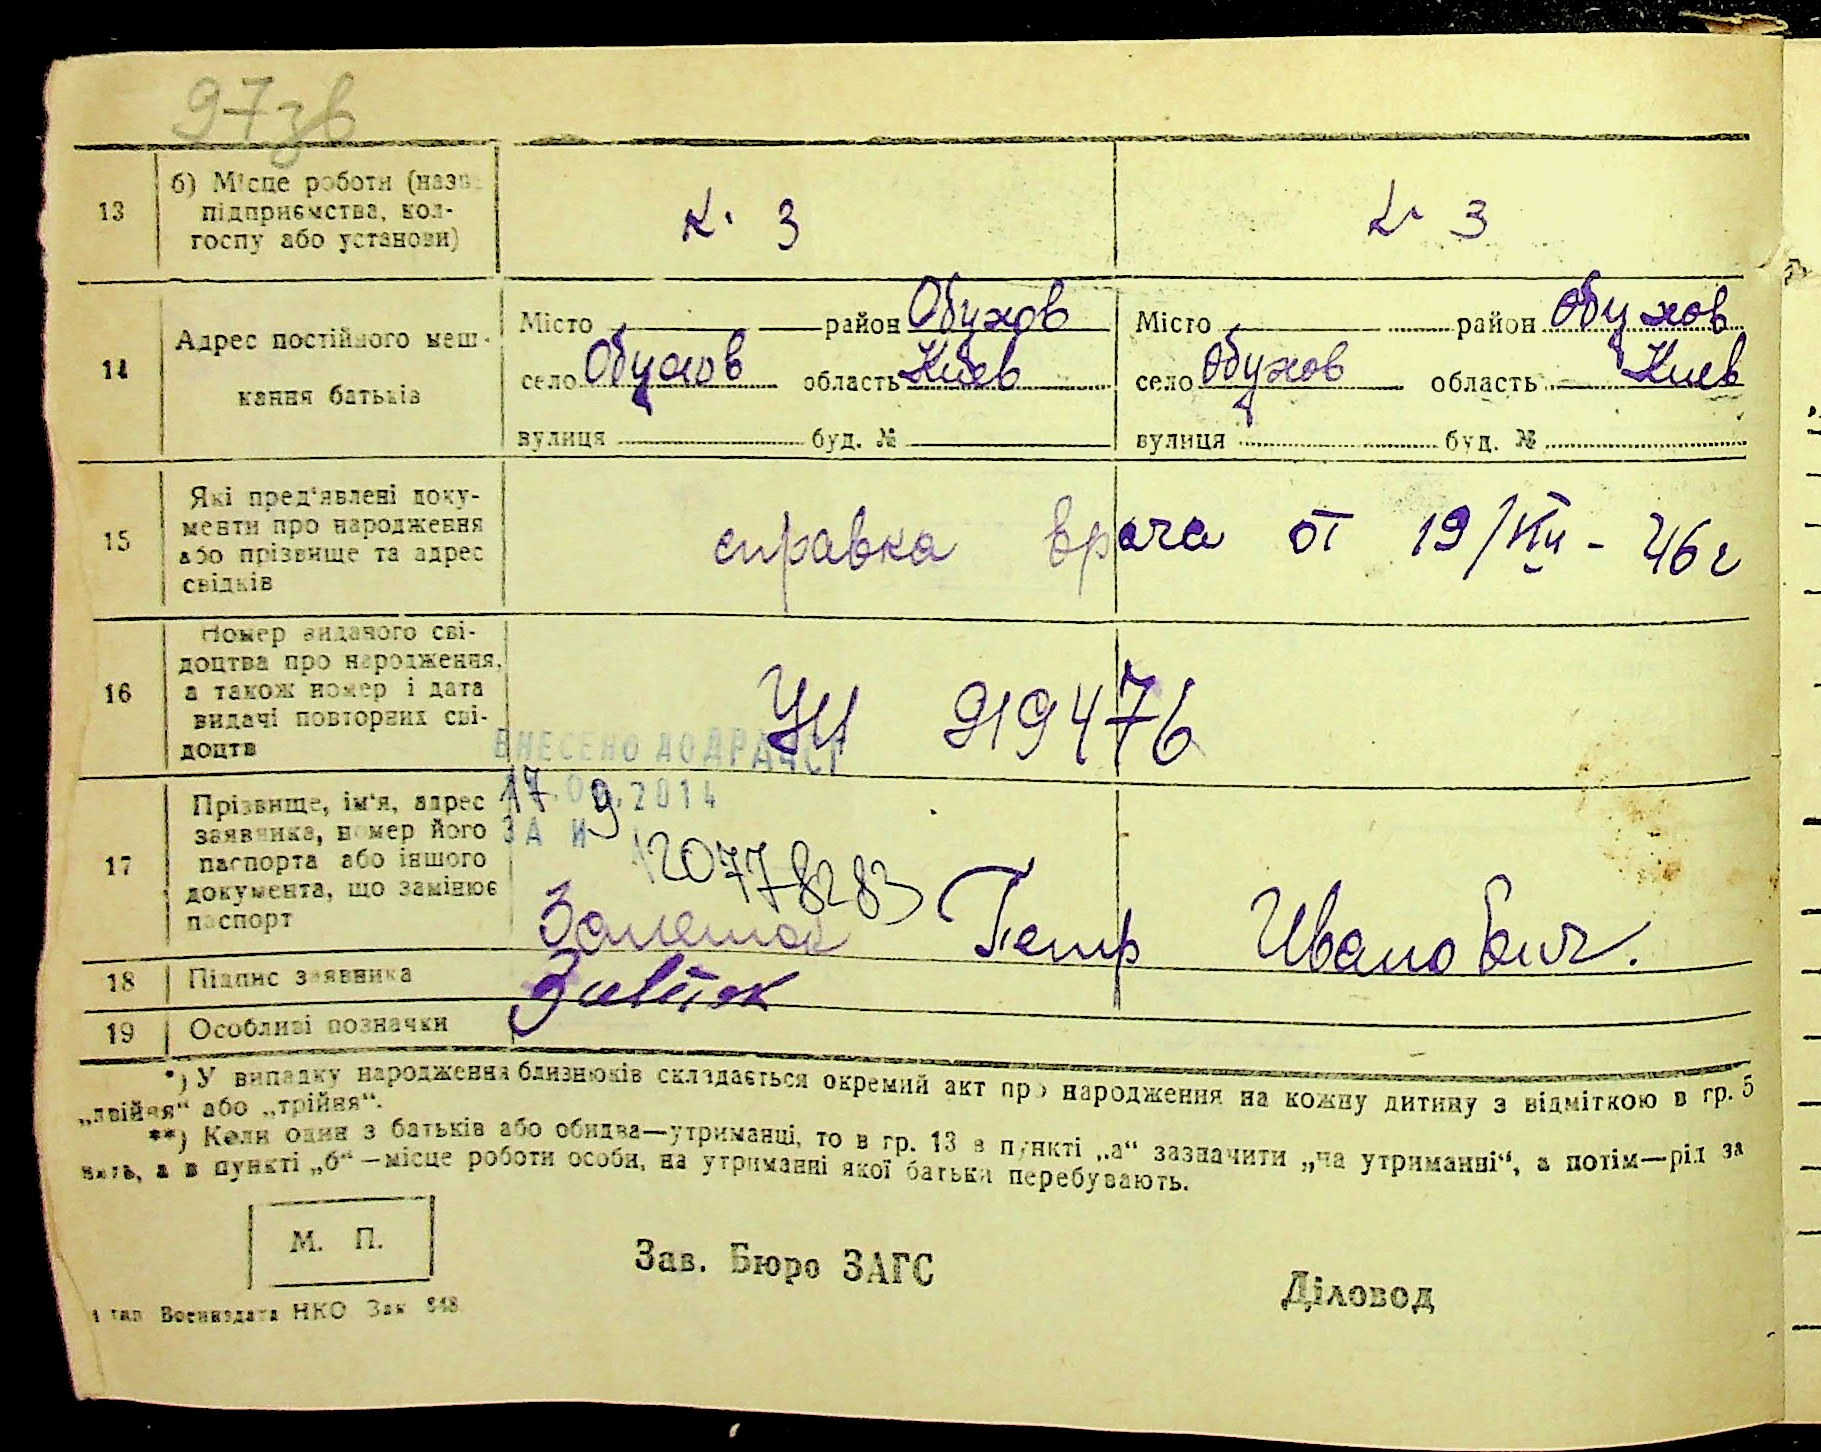 97зв
13
б) Місце роботи (назва
підприємства, кол-
госпу або установи)
к. 3
к. 3
14
Адрес постійного меш-
кання батьків
Місто район Обухов
село Обухов область Киев
вулиця буд. №
Місто район Обухов
село Обухов область Киев
вулиця буд. №
15
Які пред'явлені доку-
менти про народження
або прізвище та адрес
свідків
справка врача от 19/ - 46 г
16
Номер виданого сві-
доцтва про народження,
а також номер і дата
видачі повторних сві-
доцтв
919476
ВНЕСЕНО ДО ДРАЦСГ
17.09.2014
ЗА №
120778283
17
Прізвище, ім'я, адрес
заявника, номер його
паспорта або іншого
документа, що замінює
паспорт
Петр Иванович.
18
Підпис заявника
19
Особливі позначки
*) У випадку народження близнюків складається окремий акт про народження на кожну дитину з відміткою в гр. 5
„двійня“ або „трійня“.
**) Коли один з батьків або обидва—утриманці, то в гр. 13 в пункті „а“ зазначити „на утриманні“, а потім—рід за
нять, а в пункті „б“—місце роботи особи, на утриманні якої батьки перебувають.
М. П.
Зав. Бюро ЗАГС
Діловод
тип Воениздата НКО Зак 848